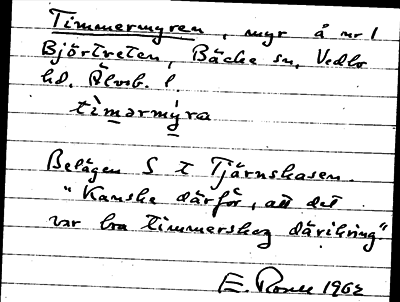 Timmermyren, myr å nr 1
Björtveten, Bäcke sn, Vedbo
hd. Älvsb. l.
timərmýra
Belägen S t Tjärnshasen.
"Kanske därför, att det
var bra timmerskog däríkring".
E. 1962